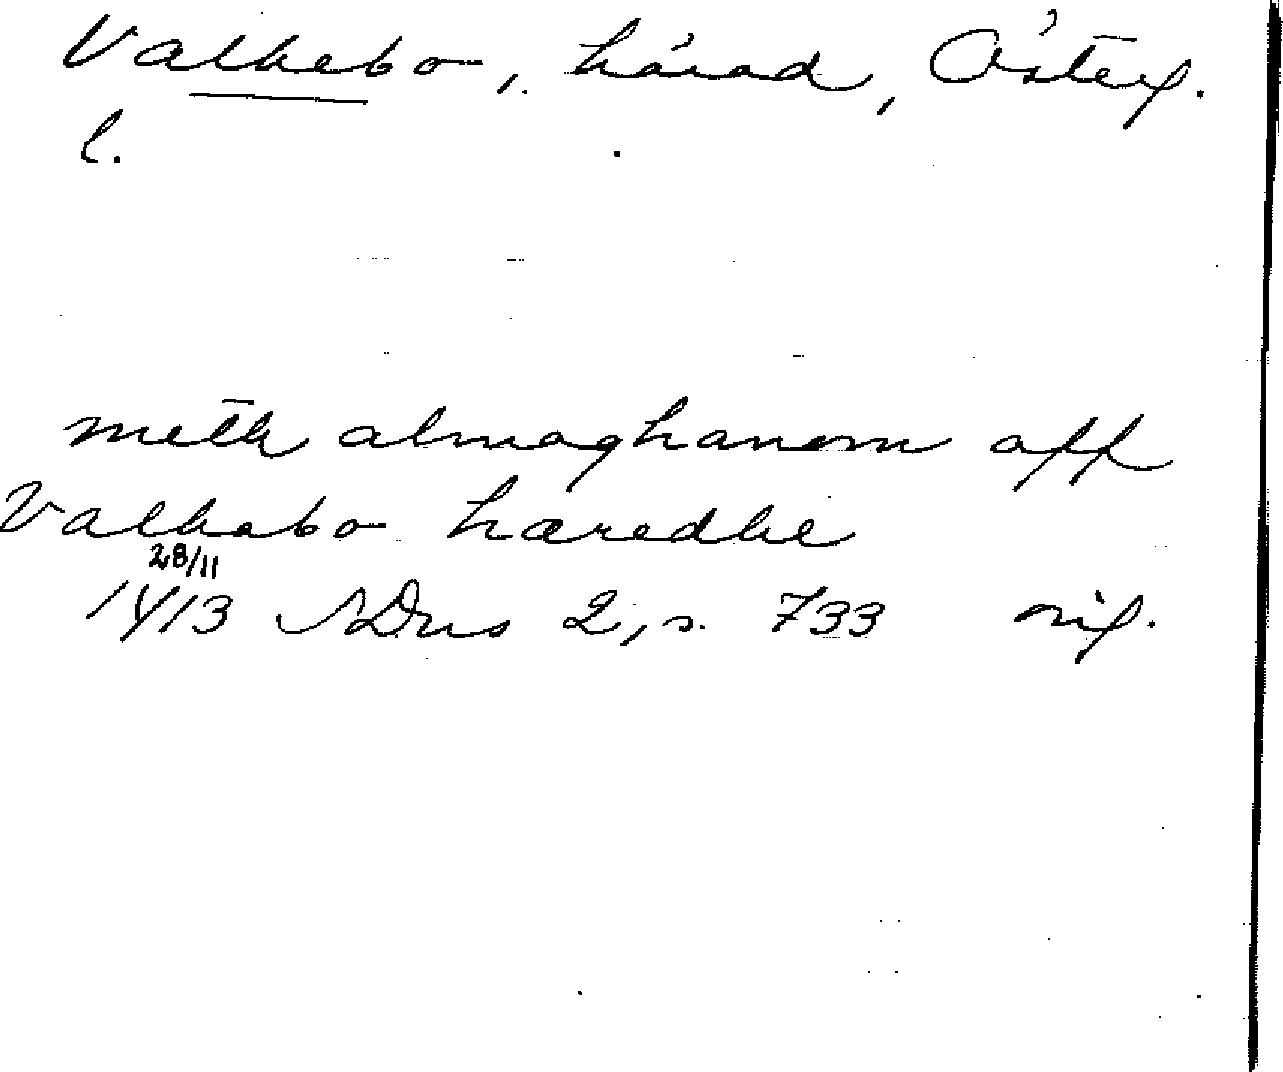 Valkebo, härad, Österg.
l.
meth almoghanom aff
Valkabo hæredhe
28/11
1413 SDns 2, s. 733 sig.